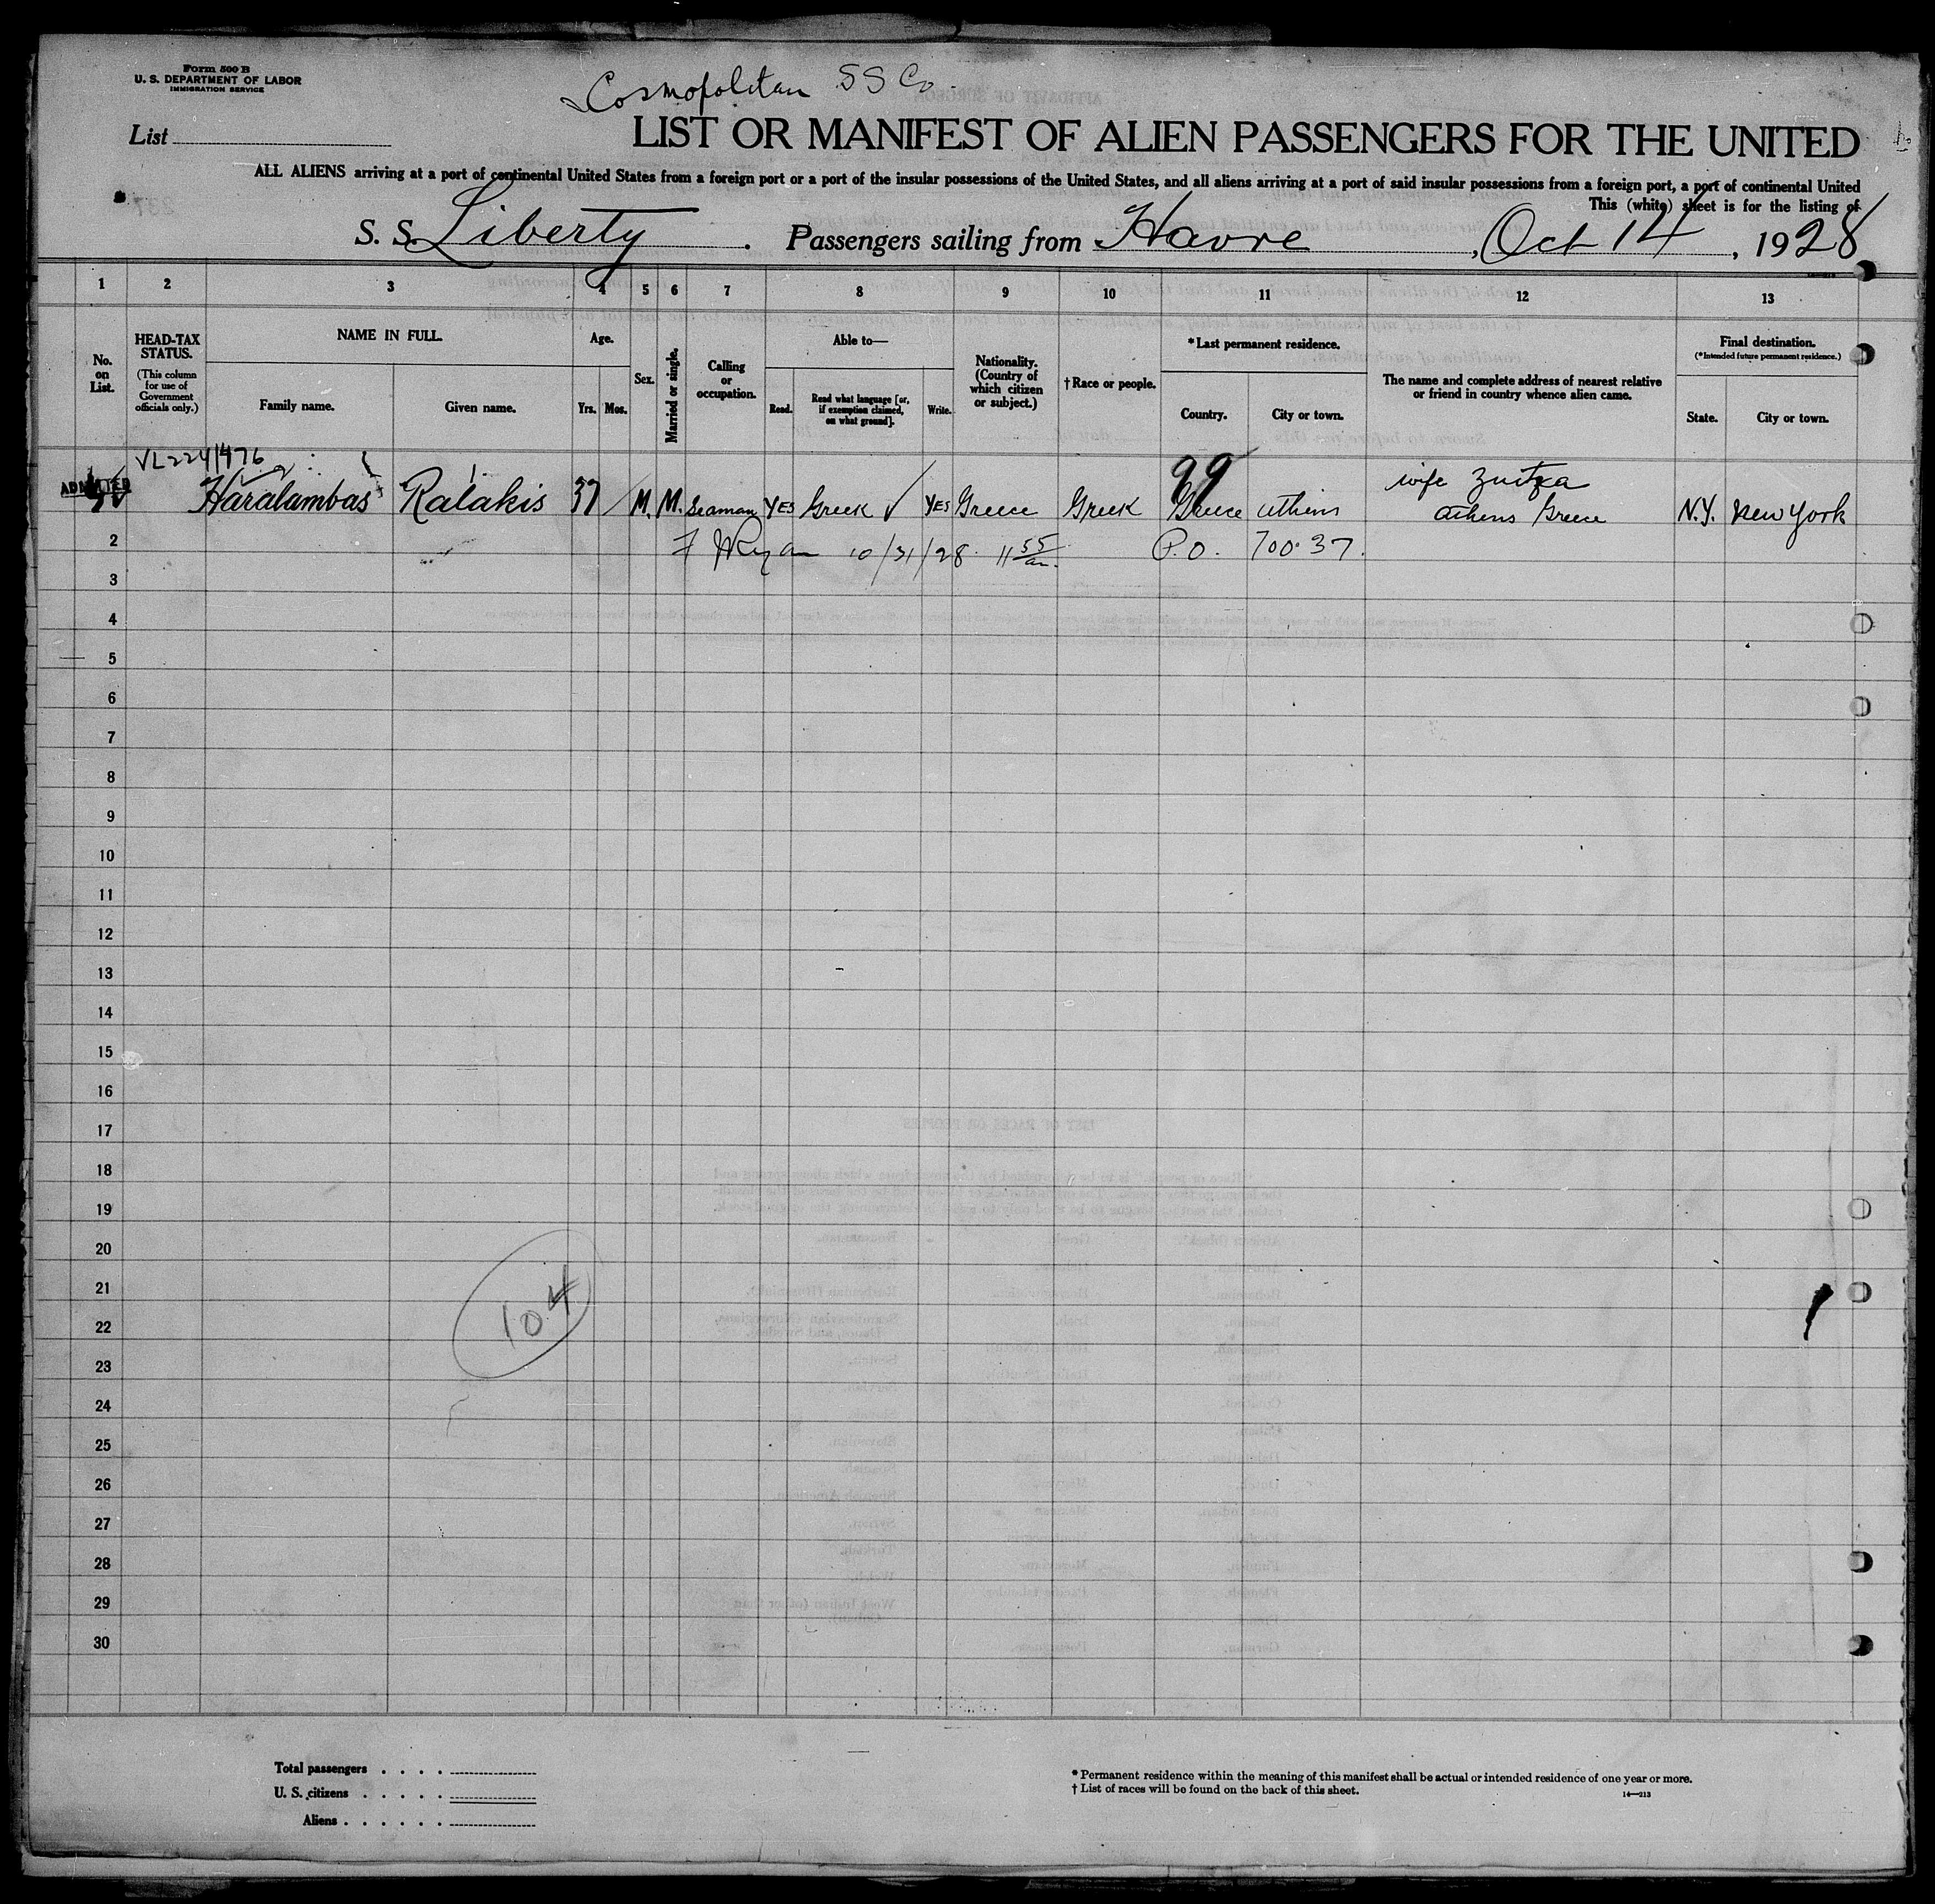 Form 500 B
U. S. DEPARTMENT OF LABOR
IMMIGRATION SERVICE
Cosmopolitan S S Co
List
LIST OR MANIFEST OF ALIEN PASSENGERS FOR THE UNITED
ALL ALIENS arriving at a port of continental United States from a foreign port or a port of the insular possessions of the United States, and all aliens arriving at a port of said insular possessions from a foreign port, a port of continental United
This (white) sheet is for the listing of
S. S. Liberty. Passengers sailing from Havre, Oct 14, 1928
1 2 3 4 5 6 7 8 9 10 11 12 13
No. on List.
HEAD-TAX STATUS.
(This column for use of Government officials only.)
NAME IN FULL.
Family name. Given name.
Age.
Yrs. Mos.
Sex.
Married or single.
Calling or occupation.
Able to—
Read. Read what language [or, if exemption claimed, on what ground]. Write.
Nationality. (Country of which citizen or subject.)
†Race or people.
*Last permanent residence.
Country. City or town.
The name and complete address of nearest relative or friend in country whence alien came.
Final destination.
(*Intended future permanent residence.)
State. City or town.
ADMITTED Haralambas Ralakis 37 M. M. Seaman YES Greek ✓ YES Greece Greek 99 Greece Athins wife athens Greece N.Y. New York
2 Ryan 10/31/28 11 55 am. P.O. 700.37.
3
4
5
6
7
8
9
10
11
12
13
14
15
16
17
18
19
20
21
22
23
24
25
26
27
28
29
30
104
Total passengers . . . .
U. S. citizens . . . . .
Aliens . . . . . .
* Permanent residence within the meaning of this manifest shall be actual or intended residence of one year or more.
† List of races will be found on the back of this sheet.
14—213